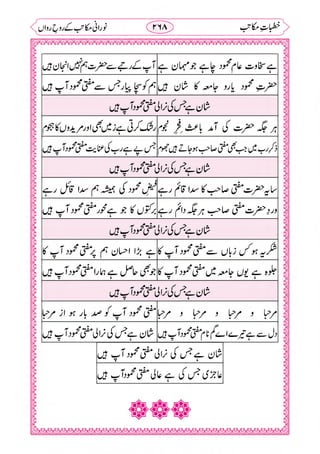 خطباتِ مکاتب ۲۶۸ نورانی مکاتب کے روحِ رواں
ہے سخاوت عام محمود چاہے جو مہمان ہے آپ کے چرے سے حضرت ہم نہیں انجان ہیں
حضرتِ محمود یارو جامعہ کا شان ہیں ہم کو سچا پیار جس سے مفتی محمود آپ ہیں
شان ہے جس کی نرالی مفتی محمود آپ ہیں
ہر جگہ حضرت کی آمد باعثِ فخرِ نجوم
ذکرِ رب میں جب بھی مفتی صاحب ہو جاتے ہیں جھوم
شان ہے جس کی نرالی مفتی محمود آپ ہیں
سایہ حضرت مفتی صاحب کا سدا قائم رہے فیضِ محمود کی ہمیشہ ہم سدا قائل رہے
وردِ حضرت مفتی صاحب ہر جگہ دائم رہے
شان ہے جس کی نرالی مفتی محمود آپ ہیں
شکریہ ہو کس زباں سے مفتی محمود آپ کا ہے بڑا احسان ہم پر مفتی محمود آپ کا
جلوہ ہے یوں جامعہ میں مفتی محمود آپ کا جو بھی حاصل ہے ہمارا مفتی محمود آپ ہیں
شان ہے جس کی نرالی مفتی محمود آپ ہیں
مرحبا و مرحبا و مرحبا و مرحبا مفتی محمود آپ کو صد بار ہو از مرحبا
دل سے ہے تیرے اے مفتی محمود آپ ہیں شان ہے جس کی نرالی مفتی محمود آپ ہیں
شان ہے جس کی نرالی مفتی محمود آپ ہیں
عاجزی جس کی ہے عالی مفتی محمود آپ ہیں